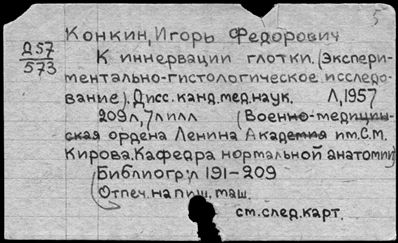 5
Конкин, Игорь Федорович
Д57
573
К иннервации глотки. (Экспери-
ментально-гистологическое исследо-
вание). Дисс. канд. мед. наук. Л, 1957
209л, 7л илл (Военно-медицин-
ская ордена Ленина Академия им. С.М.
Кирова. Кафедра нормальной анатомии)
Библиогр: л 191-209
Отпеч. на пиш. маш.
см. след. карт.